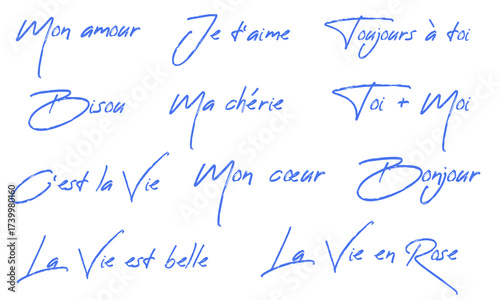 Mon amour Je t'aime Toujours à toi
Bisou Ma chérie Toi + Moi
C'est la Vie Mon cœur Bonjour
La Vie est belle La Vie en Rose
Adobe Stock | #1739980160